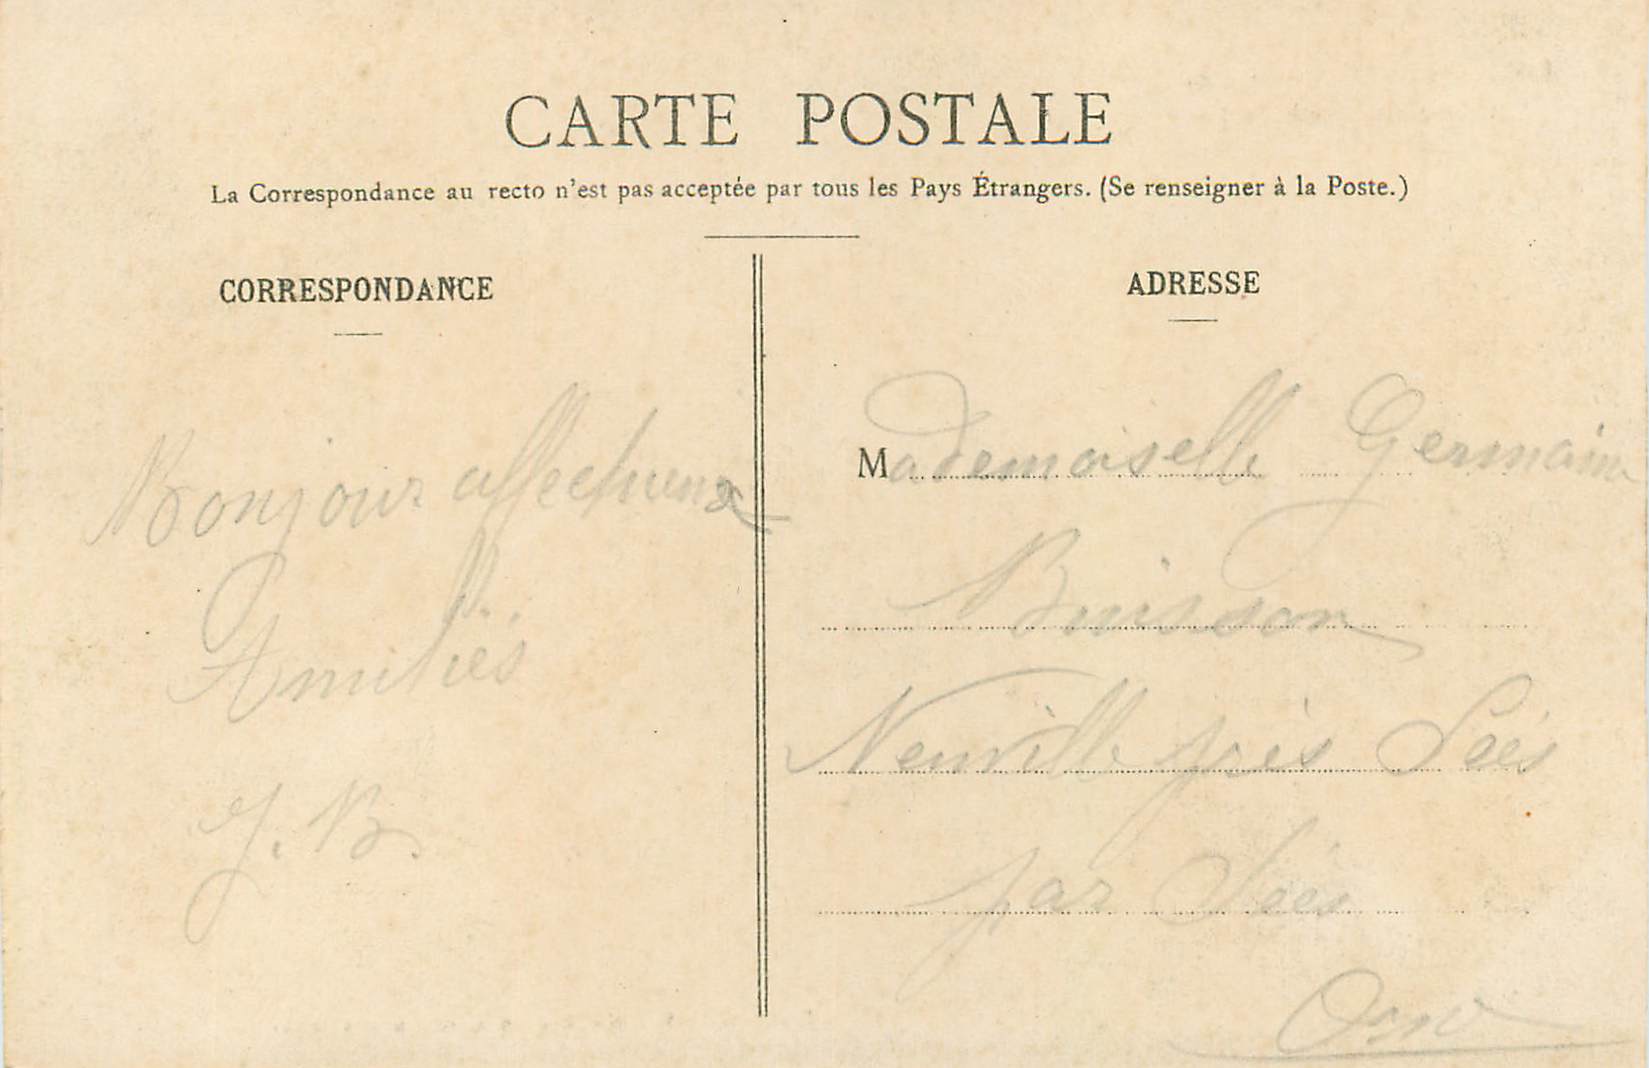 CARTE POSTALE
La Correspondance au recto n'est pas acceptée par tous les Pays Étrangers. (Se renseigner à la Poste.)
CORRESPONDANCE
Bonjour affectueux
Amitiés
J. B.
ADRESSE
Mademoiselle Germaine
Buisson
Neuville près Sées
par Sées
Orne